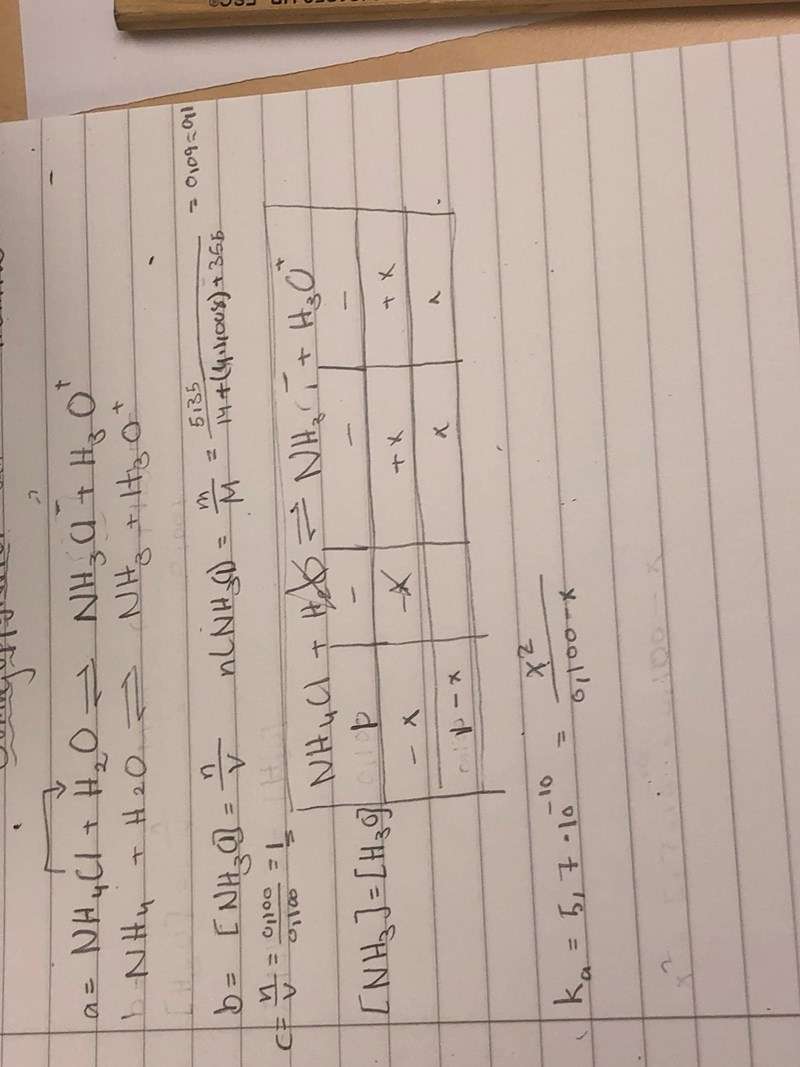 a= NH₄Cl + H₂O ⇌ NH₃Cl⁻ + H₃O⁺
NH₄ + H₂O ⇌ NH₃ + H₃O⁺
b= [NH₃Cl] = n/V n(NH₃Cl) = m/M = 5,35/14+(4·1,008)+35,5 = 0,109=0,1
c= n/V = 0,100/0,100 = 1
NH₄Cl + H₂O ⇌ NH₃Cl⁻ + H₃O⁺
[NH₃]=[H₃O] - - -
-x -x +x +x
-x x x
Ka = 5,7·10⁻¹⁰ = x²/0,100-x